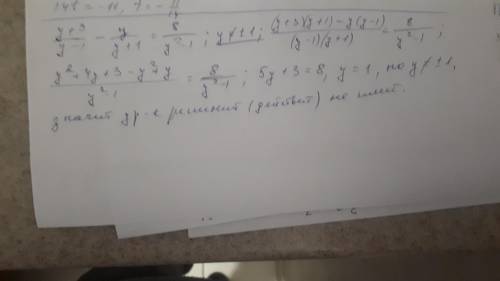 148 = -11, 7 = -11/14
(y+3)/(y-1) - y/(y+1) = 8/(y²-1) ; y≠±1; ((y+3)(y+1)-y(y-1))/((y-1)(y+1)) = 8/(y²-1) ;
(y²+4y+3-y²+y)/(y²-1) = 8/(y²-1) ; 5y+3=8, y=1, но y≠±1,
значит ур-е решений (действит) не имеет.